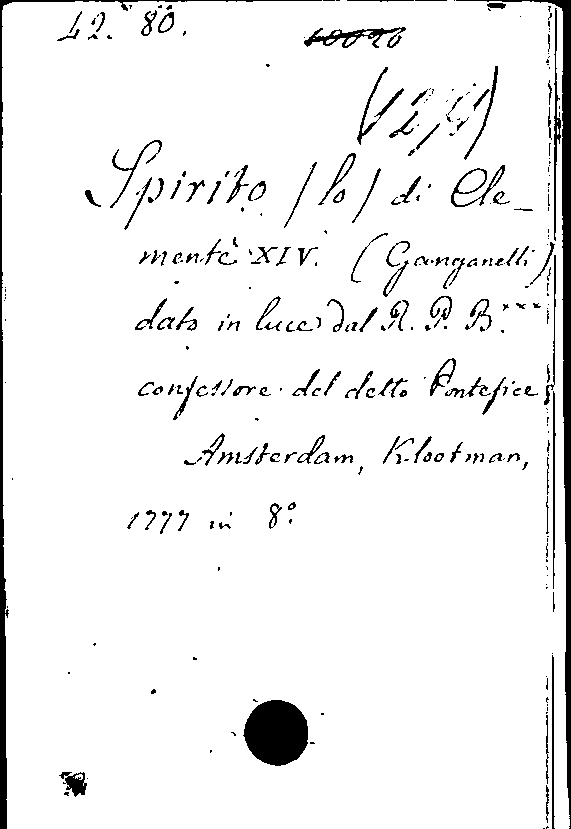 42. 80.
Spirito /lo/ di Cle_
mente XIV. (Ganganelli)
dato in luce dal R. P. B.***
confessore del detto Pontefice;
Amsterdam, Klootman,
1777 in 8º